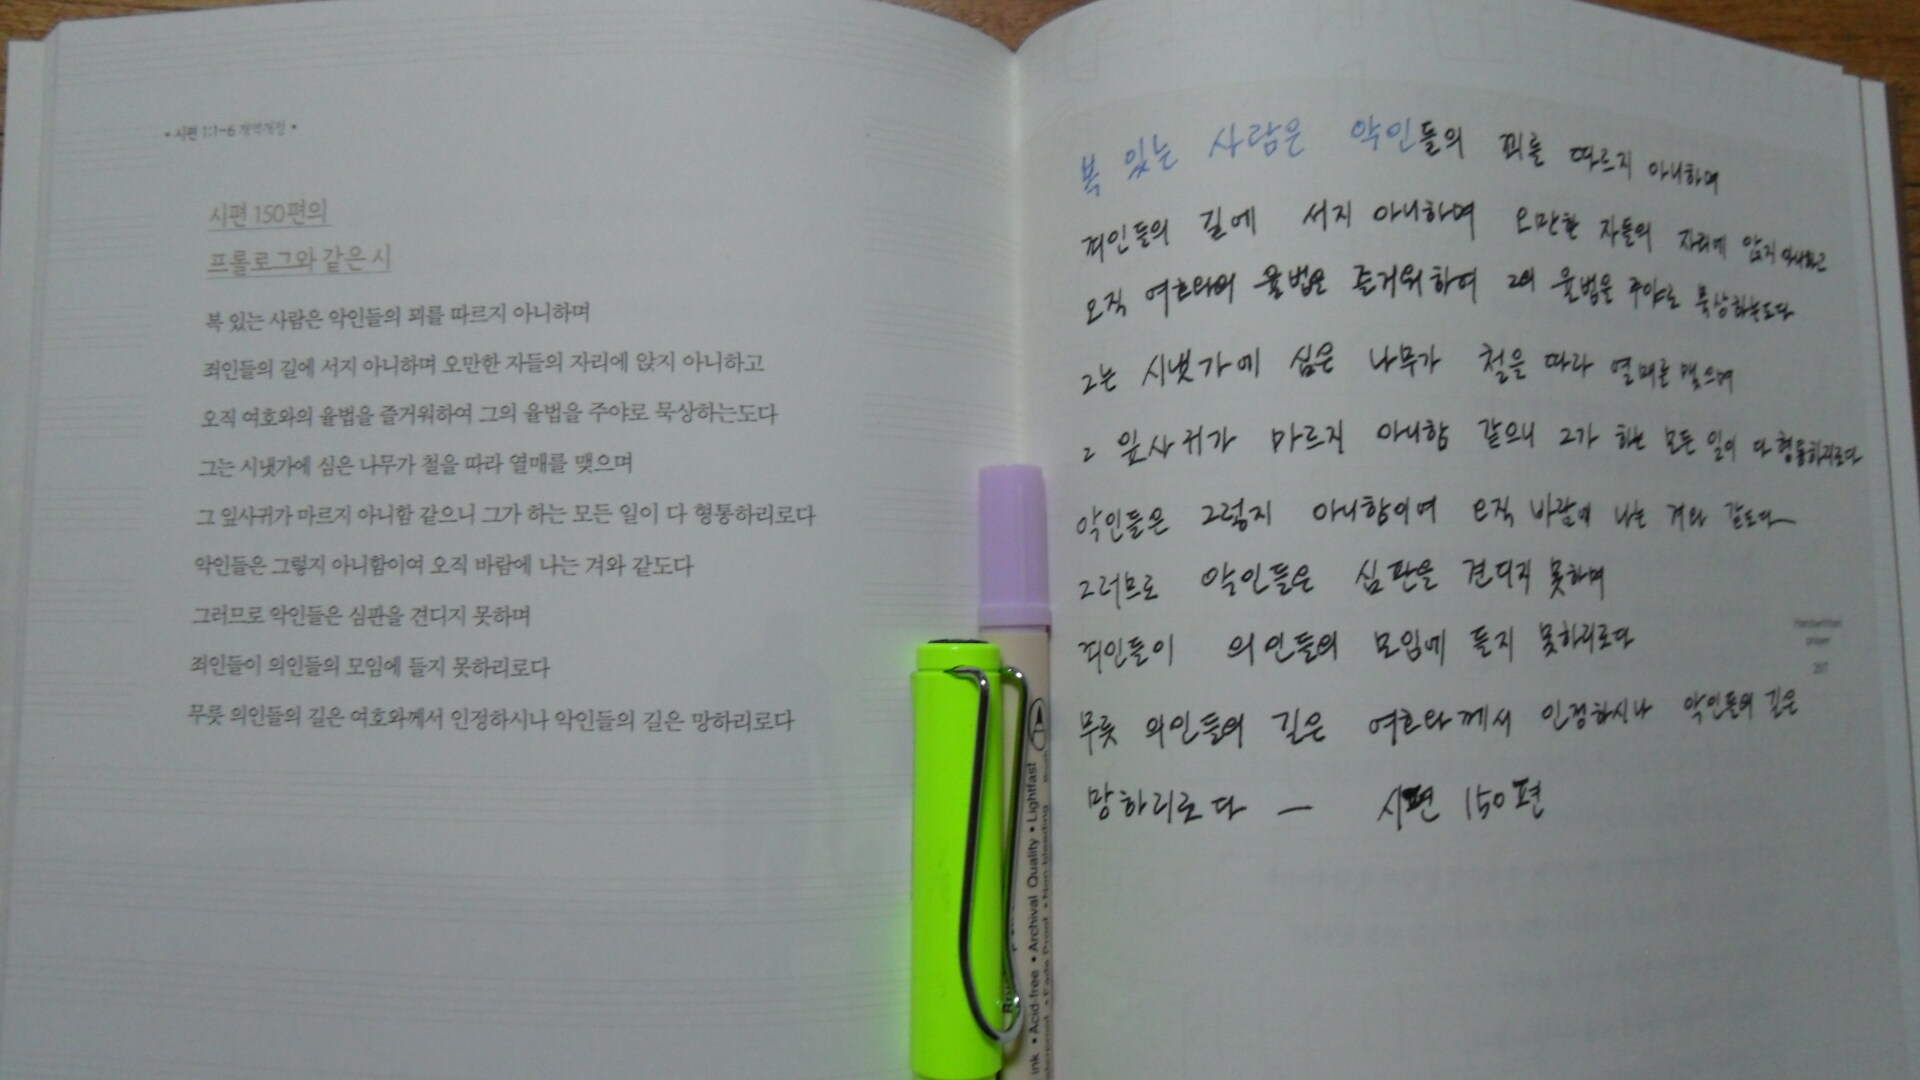 • 시편 1:1-6 개역개정 •
시편 150편의
프롤로그와 같은 시
복 있는 사람은 악인들의 꾀를 따르지 아니하며
죄인들의 길에 서지 아니하며 오만한 자들의 자리에 앉지 아니하고
오직 여호와의 율법을 즐거워하여 그의 율법을 주야로 묵상하는도다
그는 시냇가에 심은 나무가 철을 따라 열매를 맺으며
그 잎사귀가 마르지 아니함 같으니 그가 하는 모든 일이 다 형통하리로다
악인들은 그렇지 아니함이여 오직 바람에 나는 겨와 같도다
그러므로 악인들은 심판을 견디지 못하며
죄인들이 의인들의 모임에 들지 못하리로다
무릇 의인들의 길은 여호와께서 인정하시나 악인들의 길은 망하리로다
복 있는 사람은 악인들의 꾀를 따르지 아니하며
죄인들의 길에 서지 아니하며 오만한 자들의 자리에 앉지 아니하고
오직 여호와의 율법을 즐거워하여 그의 율법을 주야로 묵상하는도다
그는 시냇가에 심은 나무가 철을 따라 열매를 맺으며
그 잎사귀가 마르지 아니함 같으니 그가 하는 모든 일이 다 형통하리로다
악인들은 그렇지 아니함이여 오직 바람에 나는 겨와 같도다
그러므로 악인들은 심판을 견디지 못하며
죄인들이 의인들의 모임에 들지 못하리로다
무릇 의인들의 길은 여호와께서 인정하시나 악인들의 길은
망하리로다 — 시편 150편
Handwritten
prayer
ink • Acid-free • Archival Quality • Lightfast
• Fade Proof • Non-bleeding